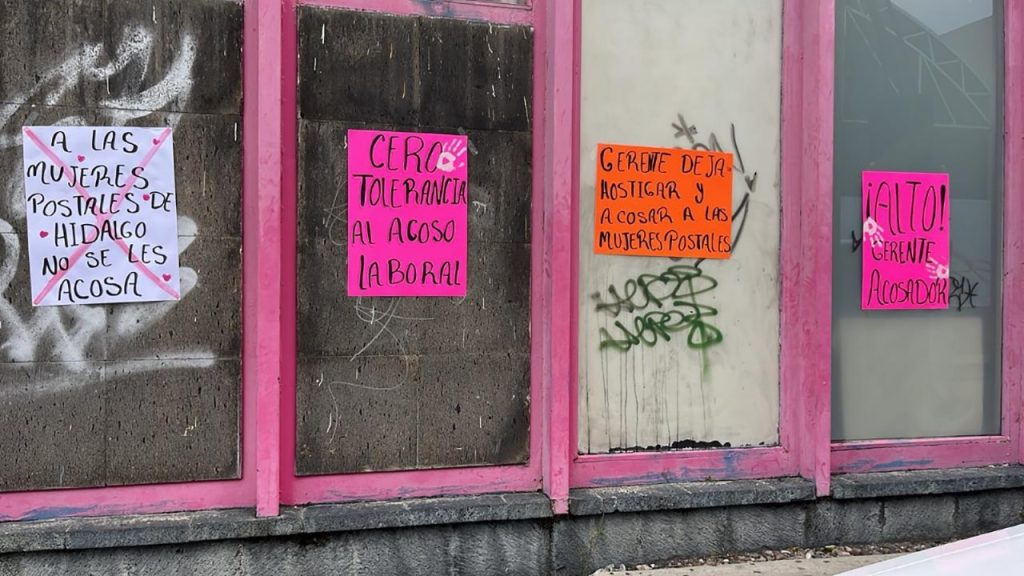 A LAS
MUJERES
POSTALES DE
HIDALGO
NO SE LES
ACOSA
CERO
TOLERANCIA
AL ACOSO
LABORAL
GERENTE DEJA
HOSTIGAR Y
ACOSAR A LAS
MUJERES POSTALES
¡ALTO!
GERENTE
ACOSADOR